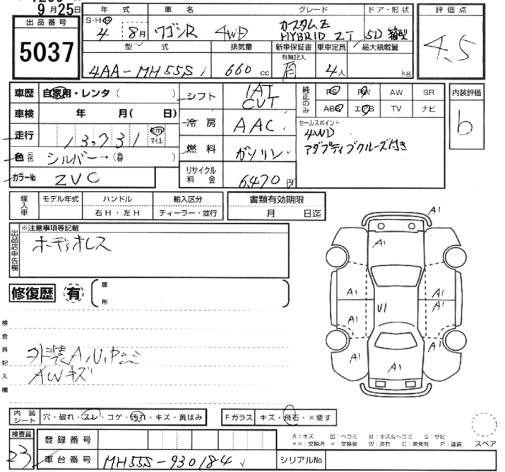 9月25
出品番号
5037
年式 車名 グレード ドア・形状 評価点
S・H 4年 8月 ワゴンR 4WD カスタムZ HYBRID ZT 5D
4.5
型式 排気量 新車保証書 乗車定員 最大積載量
有無記入
4AA-MH55S 660cc 有 4人 kg
車歴 自家用・レンタ( )
シフト IAT CVT
純正のみ PS PW AW SR
ABS エアB TV ナビ
内装評価
b
車検 年 月( )
冷房 AAC
セールスポイント
4WD
アダプティブクルーズ付き
走行 13,731 km
色 シルバー
燃料 ガソリン
カラーNo ZVC
リサイクル料金 6,470円
輸入車 モデル年式 ハンドル 輸入区分 書類有効期限
右H・左H ディーラー・並行 月 日迄
出品店申告欄
※注意事項等記載
ボディオレス
修復歴 有
箇所
検査員記入欄
外装A,U,
AWキズ
A1
A1
A1
A1
A1
A1
U1
A1
A1
A1
A1
内装シート 穴・破れ・スレ・コゲ・汚れ・キズ・黄ばみ
Fガラス キズ・飛石・×要す
スペア
検査員
23
登録番号
車台番号 MH55S-930184
シリアルNo